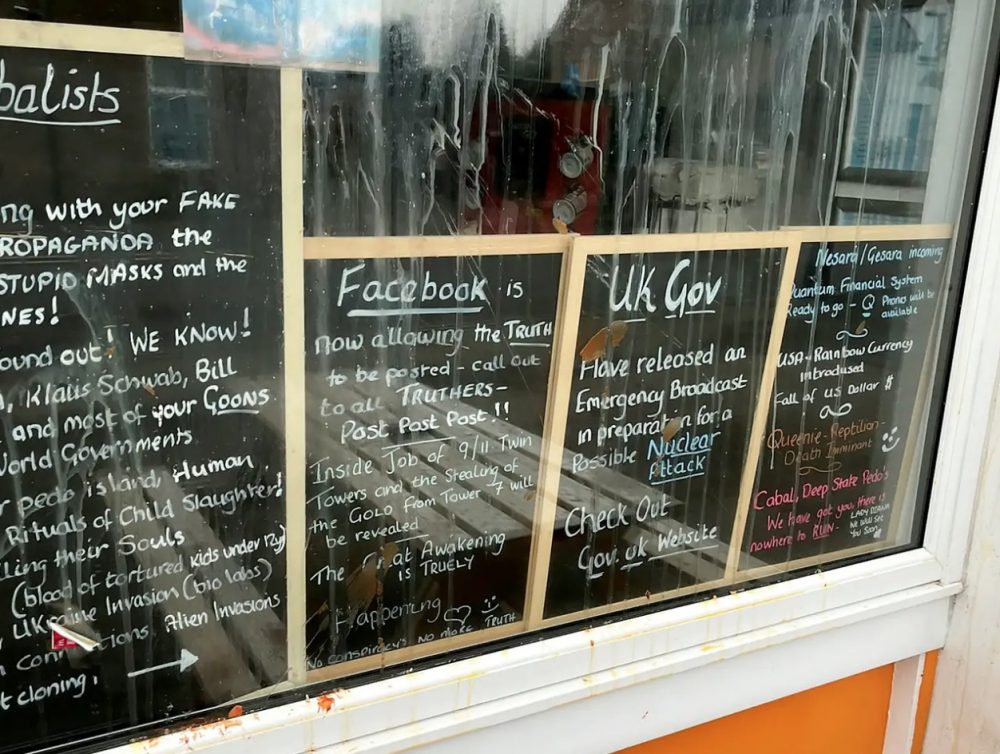 balists
ng with your FAKE
ROPAGANDA the
STUPID MASKS and the
NES!
ound out! WE KNOW!
, Klaus Schwab, Bill
and most of your GOONS
World Governments
r pedo island, Human
Rituals of Child Slaughter!
lling their Souls
(blood of tortured kids under 12yr)
Ukraine Invasion (bio labs)
Alien Invasions
t cloning!
Facebook is
now allowing the TRUTH
to be posted - call out
to all TRUTHERS -
Post Post Post!!
Inside Job of 9/11 Twin
Towers and the Stealing of
the GOLD from Tower 7 will
be revealed
The Awakening
is TRUELY
Happening
No conspiracy's No more TRUTH
UK Gov
Have released an
Emergency Broadcast
in preparation for a
Possible Nuclear
Attack
Check Out
Gov.uk Website
Nesara/Gesara incoming
Quantum Financial System
Ready to go - Q Phones will be
available
USA - Rainbow Currency
Introdused
Fall of US Dollar $
Queenie - Reptilian -
Death Imminant
Cabal, Deep State Pedo's
We have got you, there is
nowhere to RUN -
LADY DIANA
We Will See
You Soon